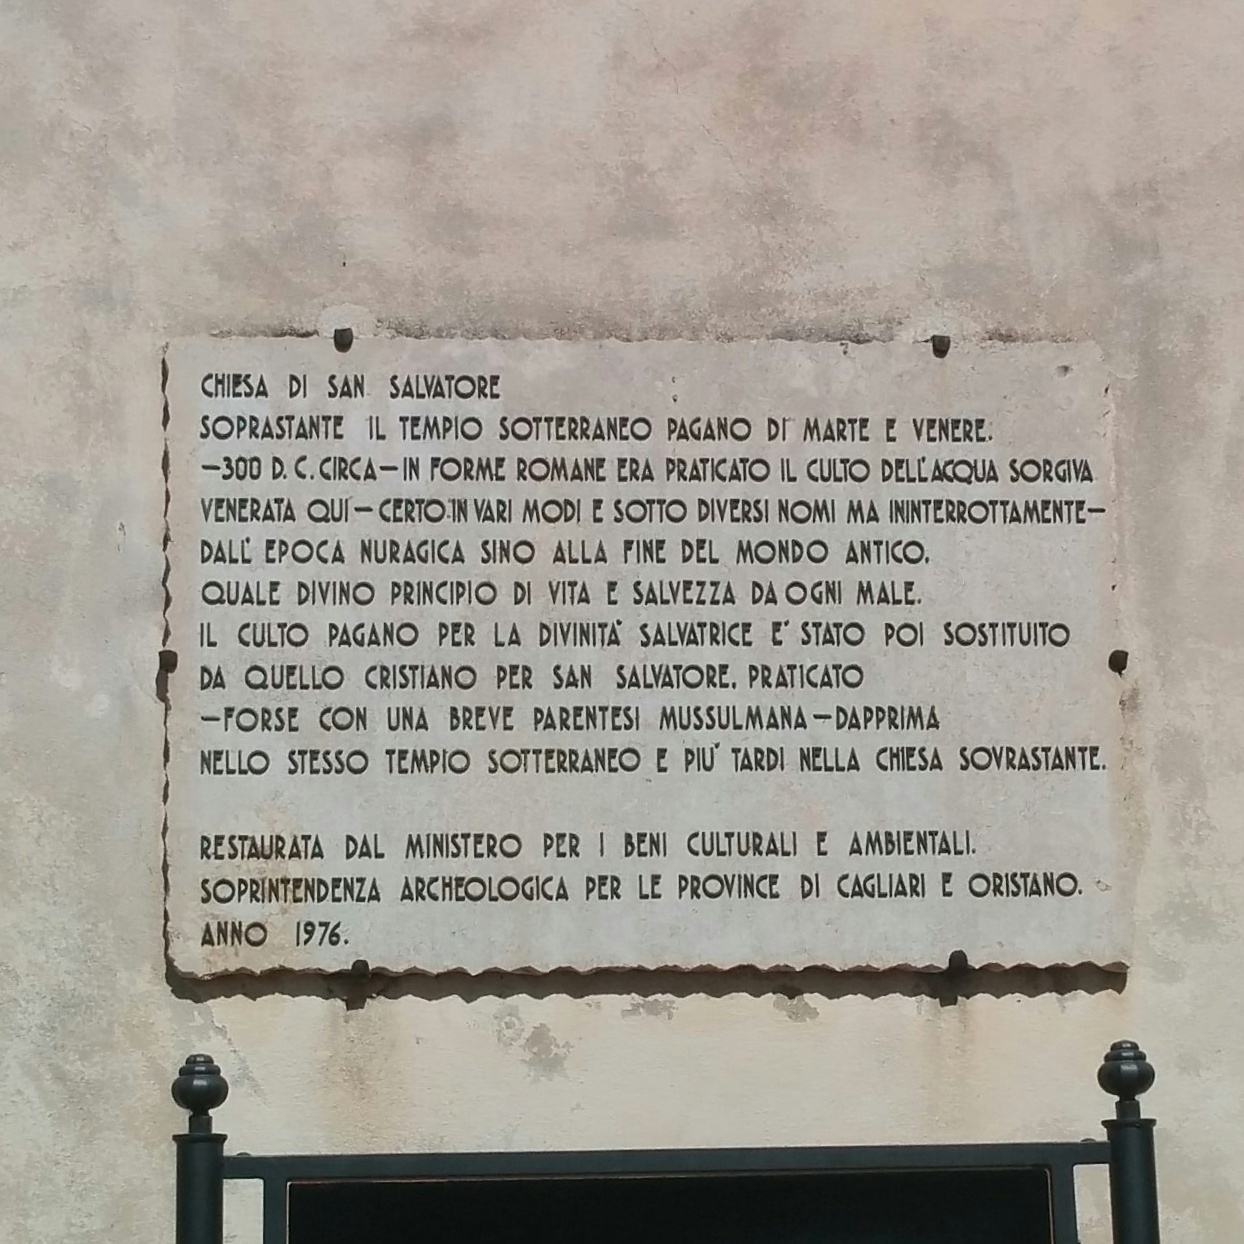 CHIESA DI SAN SALVATORE
SOPRASTANTE IL TEMPIO SOTTERRANEO PAGANO DI MARTE E VENERE.
—300 D.C. CIRCA—IN FORME ROMANE ERA PRATICATO IL CULTO DELL'ACQUA SORGIVA
VENERATA QUI—CERTO IN VARI MODI E SOTTO DIVERSI NOMI MA ININTERROTTAMENTE—
DALL' EPOCA NURAGICA SINO ALLA FINE DEL MONDO ANTICO,
QUALE DIVINO PRINCIPIO DI VITA E SALVEZZA DA OGNI MALE.
IL CULTO PAGANO PER LA DIVINITA' SALVATRICE E' STATO POI SOSTITUITO
DA QUELLO CRISTIANO PER SAN SALVATORE, PRATICATO
—FORSE CON UNA BREVE PARENTESI MUSSULMANA—DAPPRIMA
NELLO STESSO TEMPIO SOTTERRANEO E PIU' TARDI NELLA CHIESA SOVRASTANTE.
RESTAURATA DAL MINISTERO PER I BENI CULTURALI E AMBIENTALI.
SOPRINTENDENZA ARCHEOLOGICA PER LE PROVINCE DI CAGLIARI E ORISTANO.
ANNO 1976.